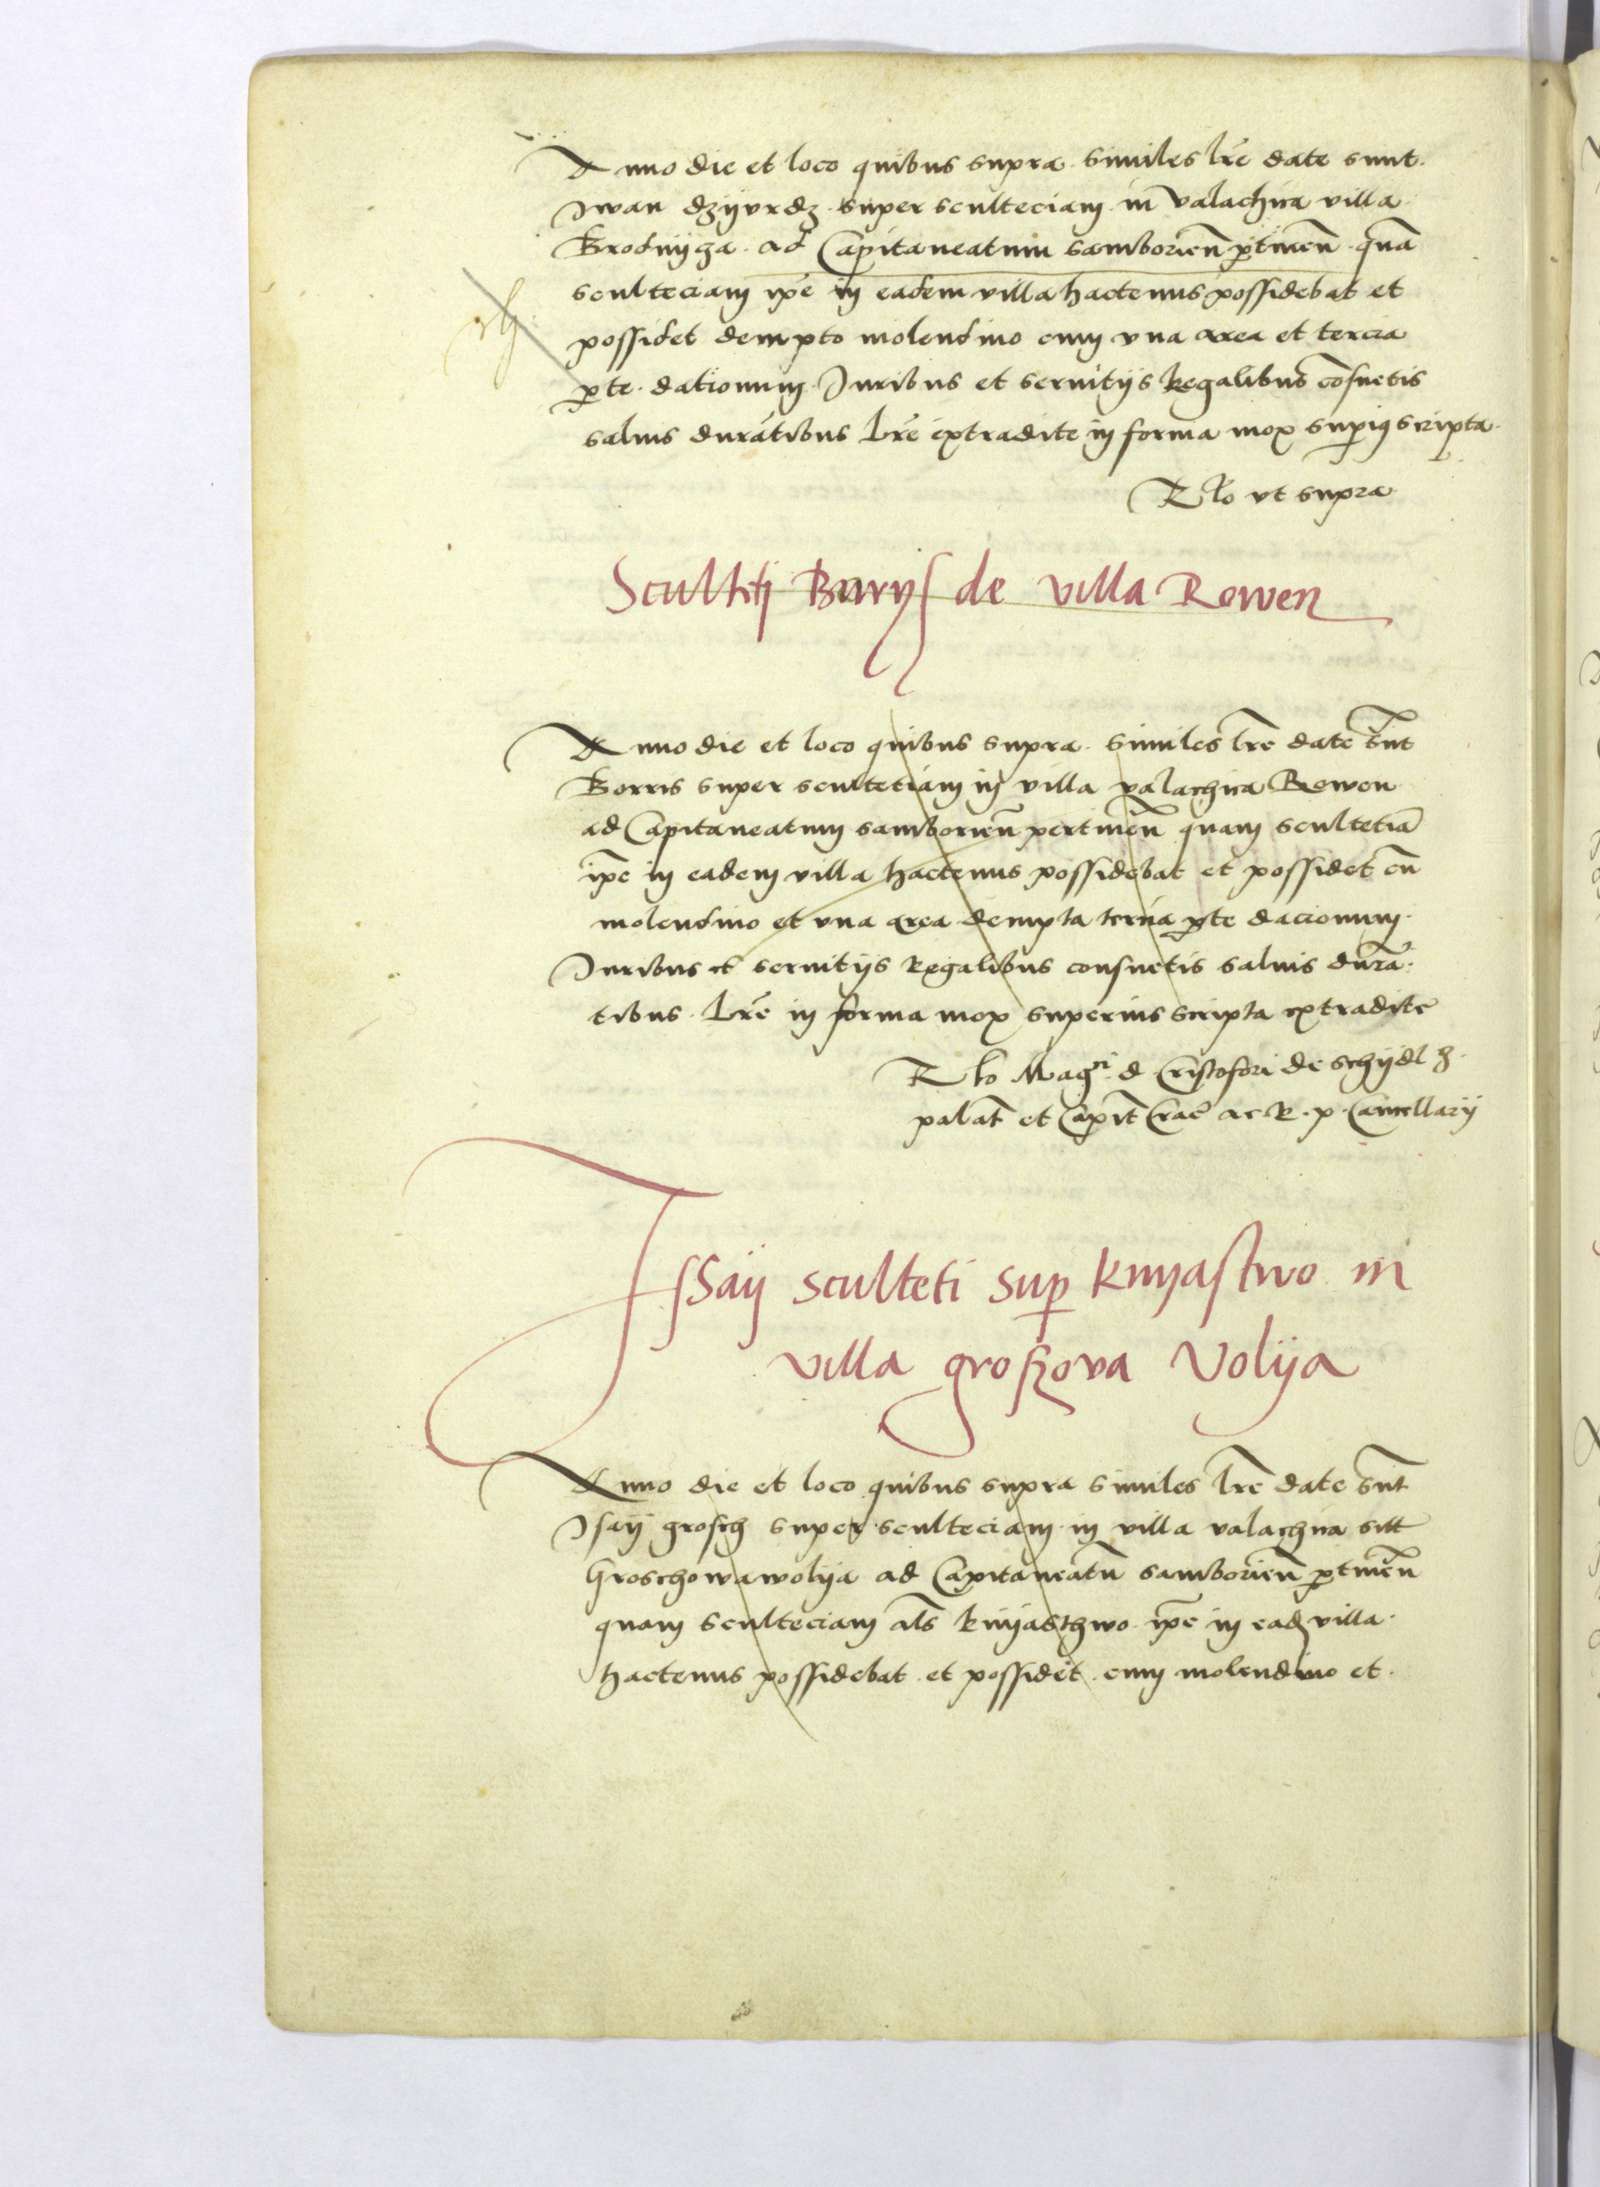 Anno die et loco quibus supra. Similes lr̄e date sunt.
Iwan dzyurdz super sculteciam in valachica villa
Brodnyza. ad Capitaneatum samborien̄ ꝑtinen̄ quā
sculteciam ip̄e in eadem villa hactenus possidebat et
possidet dempto molendino cum vna area et tercia
ꝑte. dationum. Iuribus et seruitijs Regalibus cōsuetis
saluis durātibus Lr̄e extradite in forma mox supiꝰ scripta.
Rlo vt supra
Sculteti Burys de villa Rowen
Anno die et loco quibus supra. Similes lr̄e date sūt
Borris super scultetiam in villa valachica Rowen
ad Capitaneatum samborien̄ pertinen̄ quam scultetiā
ip̄e in eadem villa hactenus possidebat et possidet cū
molendino et vna area dempta tercia ꝑte dacionum.
Iuribus et seruitijs Regalibus consuetis saluis durā.
tibus. Lr̄e in forma mox superius scripta extradite
Rlo Magci d Cristofori de schydl z.
palat̄ et Capit̄ Crac̄ ac R. p. Cancellarij
Issay sculteti suꝑ knyastwo in
villa groszova Volya
Anno die et loco quibus supra similes lr̄e date sūt
Isay grosch super sculteciam in villa valachica
Groschowawolya ad Capitaneatū samborien̄ ꝑtinen̄
quam sculteciam al̄s knyasthwo ip̄e in ead villa.
hactenus possidebat. et possidet. cum molendino et.